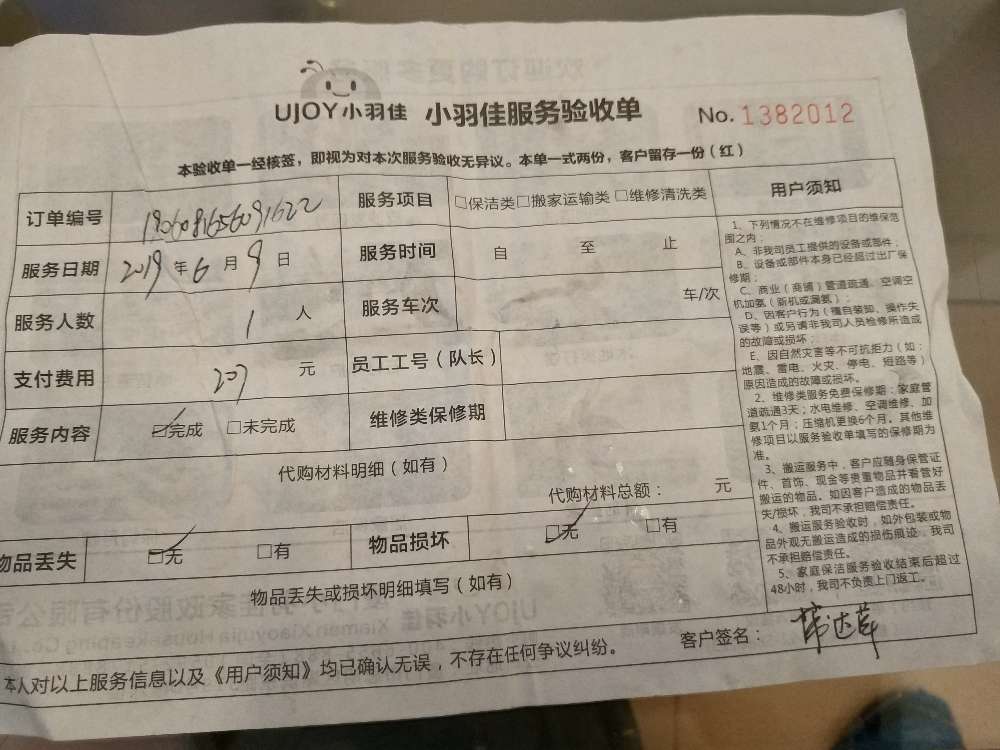 UJOY小羽佳 小羽佳服务验收单 No. 1382012
本验收单一经核签，即视为对本次服务验收无异议。本单一式两份，客户留存一份（红）
订单编号 服务项目 □保洁类□搬家运输类 □维修清洗类
服务日期 2019 年 6 月 9 日 服务时间 自 至 止
服务人数 1 人 服务车次 车/次
支付费用 207 元 员工工号（队长）
服务内容 ☑完成 □未完成 维修类保修期
代购材料明细（如有）
代购材料总额： 元
物品丢失 ☑无 □有 物品损坏 ☑无 □有
物品丢失或损坏明细填写（如有）
用户须知
1、下列情况不在维修项目的维保范
围之内：
A、非我司员工提供的设备或部件；
B、设备或部件本身已经超过出厂保
修期；
C、商业（商铺）管道疏通、空调空
机加氨（新机或漏氨）；
D、因客户行为（擅自装卸、操作失
误等）或另请非我司人员检修所造成
的故障或损坏；
E、因自然灾害等不可抗拒力（如：
地震、雷电、火灾、停电、短路等）
原因造成的故障或损坏。
2、维修类服务免费保修期：家庭管
道疏通3天；水电维修、空调维修、加
氨1个月；压缩机更换6个月。其他维
修项目以服务验收单填写的保修期为
准。
3、搬运服务中，客户应随身保管证
件、首饰、现金等贵重物品并看管好
搬运的物品。如因客户造成的物品丢
失/损坏，我司不承担赔偿责任。
4、搬运服务验收时，如外包装或物
品外观无搬运造成的损伤痕迹，我司
不承担赔偿责任。
5、家庭保洁服务验收结束后超过
48小时，我司不负责上门返工。
客户签名：
本人对以上服务信息以及《用户须知》均已确认无误，不存在任何争议纠纷。